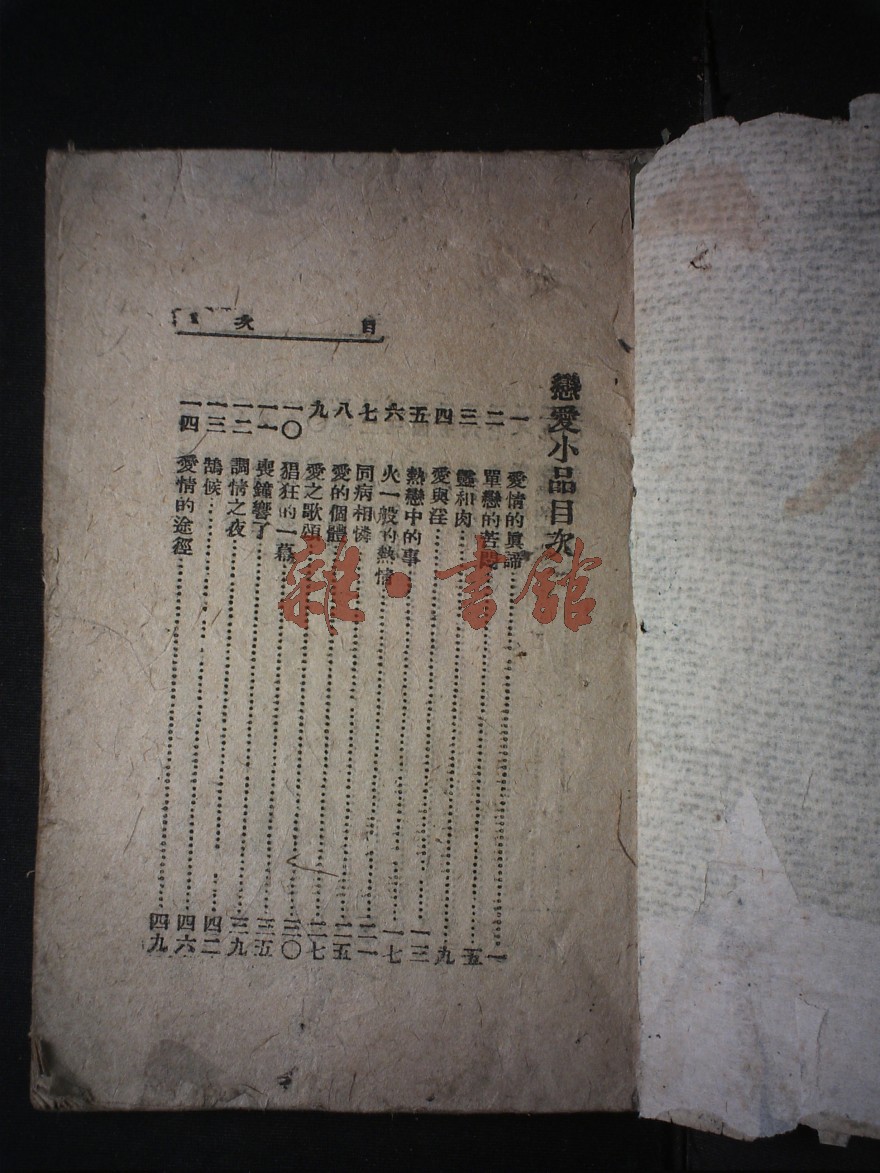 目次
戀愛小品目次
一 愛情的眞諦 一
二 單戀的苦悶 五
三 靈和肉 九
四 愛與淫 一三
五 熱戀中的事 一七
六 火一般的熱情 二一
七 同病相憐 二五
八 愛的個體 二七
九 愛之歌頌 三〇
一〇 猖狂的一幕 三五
一一 喪鐘響了 三九
一二 調情之夜 四二
一三 鵠候 四六
一四 愛情的途徑 四九
雜·書館